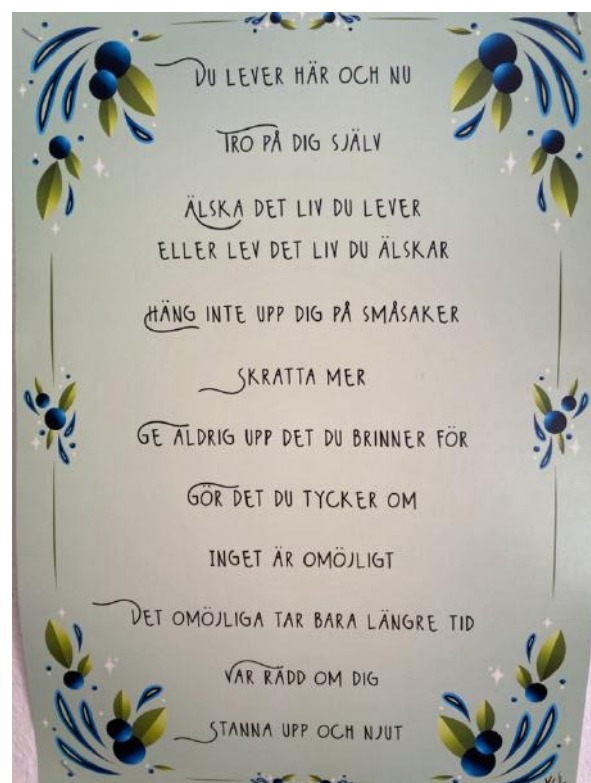 DU LEVER HÄR OCH NU
TRO PÅ DIG SJÄLV
ÄLSKA DET LIV DU LEVER
ELLER LEV DET LIV DU ÄLSKAR
HÄNG INTE UPP DIG PÅ SMÅSAKER
SKRATTA MER
GE ALDRIG UPP DET DU BRINNER FÖR
GÖR DET DU TYCKER OM
INGET ÄR OMÖJLIGT
DET OMÖJLIGA TAR BARA LÄNGRE TID
VAR RÄDD OM DIG
STANNA UPP OCH NJUT